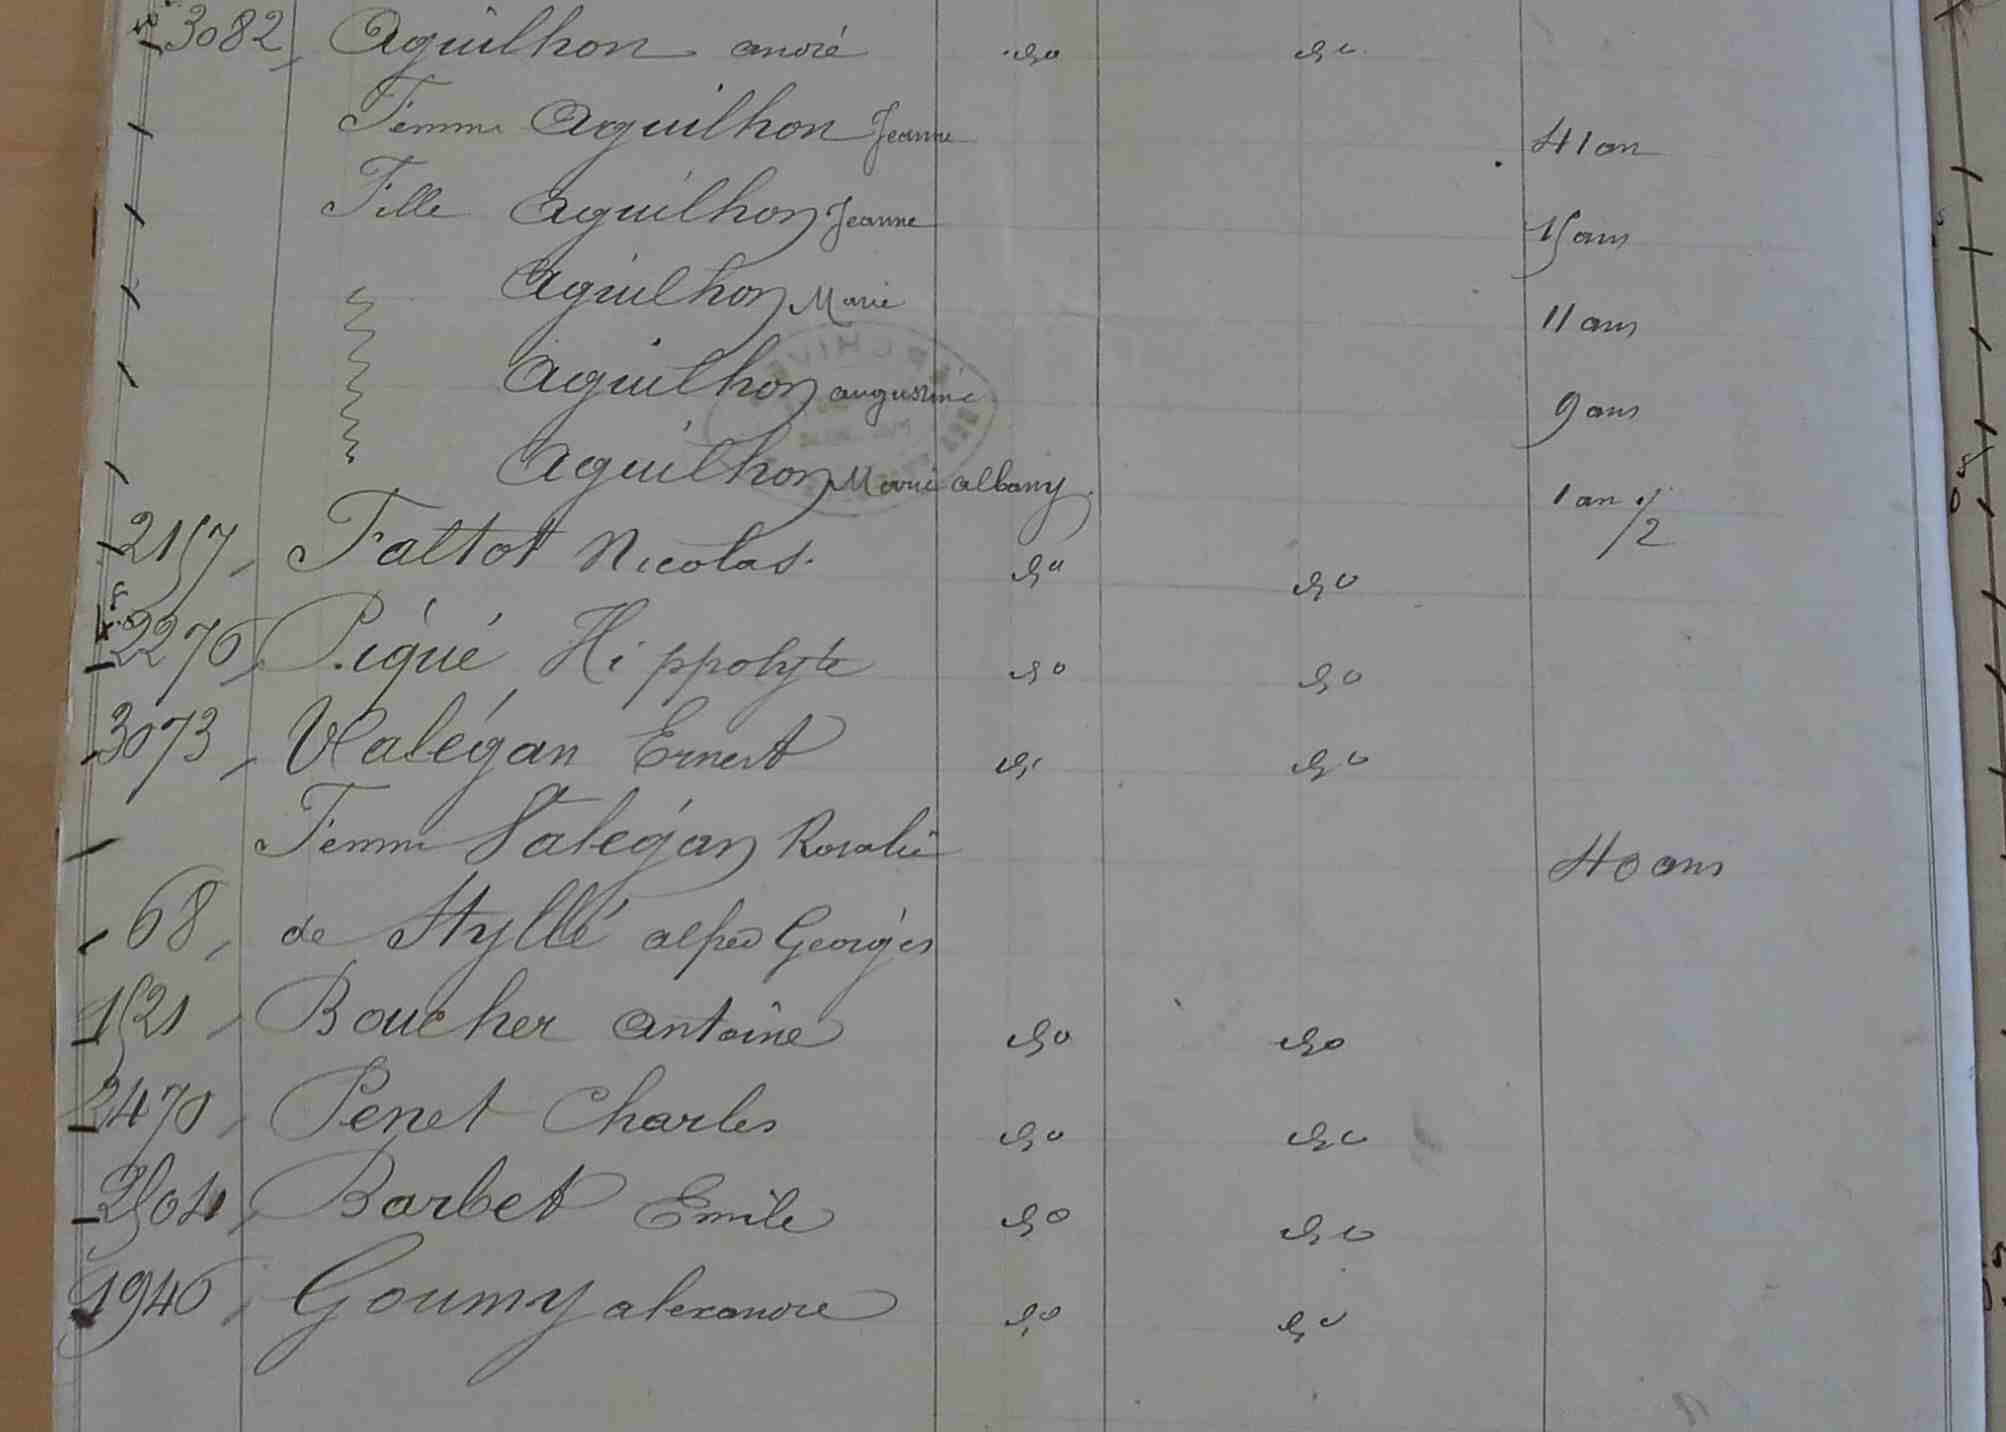 3082, Aguilhon andré do do
Femme Aguilhon Jeanne 41 an
Fille Aguilhon Jeanne 15 ans
Aguilhon Marie 11 ans
Aguilhon augustine 9 ans
Aguilhon Marie albany. 1 an 1/2
2157, Faltot Nicolas. do do
2276, Piqué Hippolyte do do
3073, Valégan Ernest do do
Femme Valégan Rosalie 40 ans
68, de Styllé alfred Georges
1521, Boucher antoine do do
2470, Penet Charles do do
2504, Barbet Emile do do
1946, Goumy alexandre do do